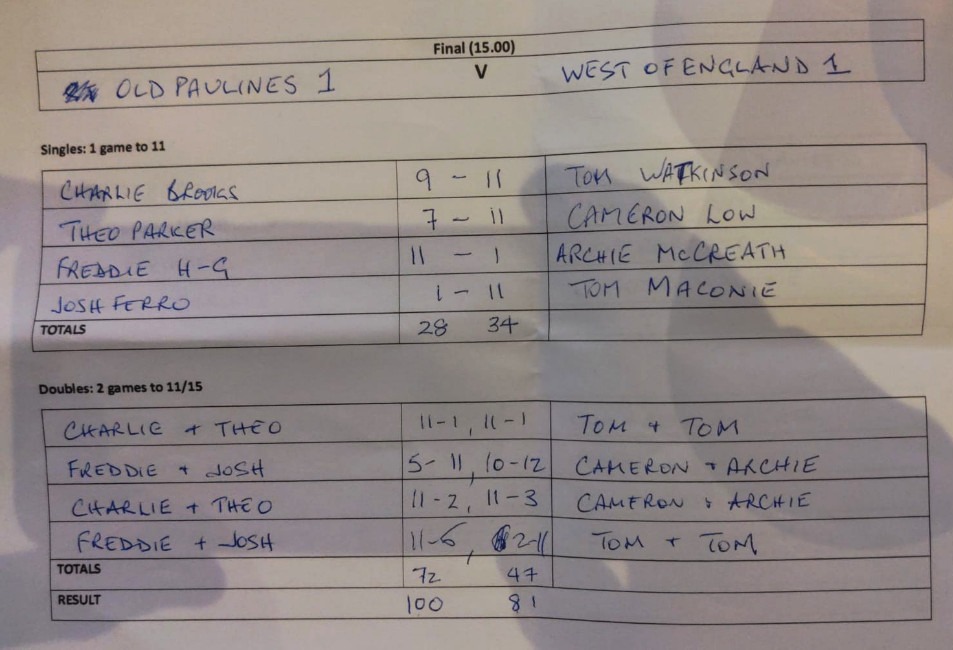 Final (15.00)
OLD PAULINES 1 V WEST OF ENGLAND 1
Singles: 1 game to 11
CHARLIE BROOKS 9 - 11 TOM WATKINSON
THEO PARKER 7 - 11 CAMERON LOW
FREDDIE H-G 11 - 1 ARCHIE McCREATH
JOSH FERRO 1 - 11 TOM MACONIE
TOTALS 28 34
Doubles: 2 games to 11/15
CHARLIE + THEO 11-1, 11-1 TOM + TOM
FREDDIE + JOSH 5-11, 10-12 CAMERON + ARCHIE
CHARLIE + THEO 11-2, 11-3 CAMERON + ARCHIE
FREDDIE + JOSH 11-6, 2-11 TOM + TOM
TOTALS 72 47
RESULT 100 81